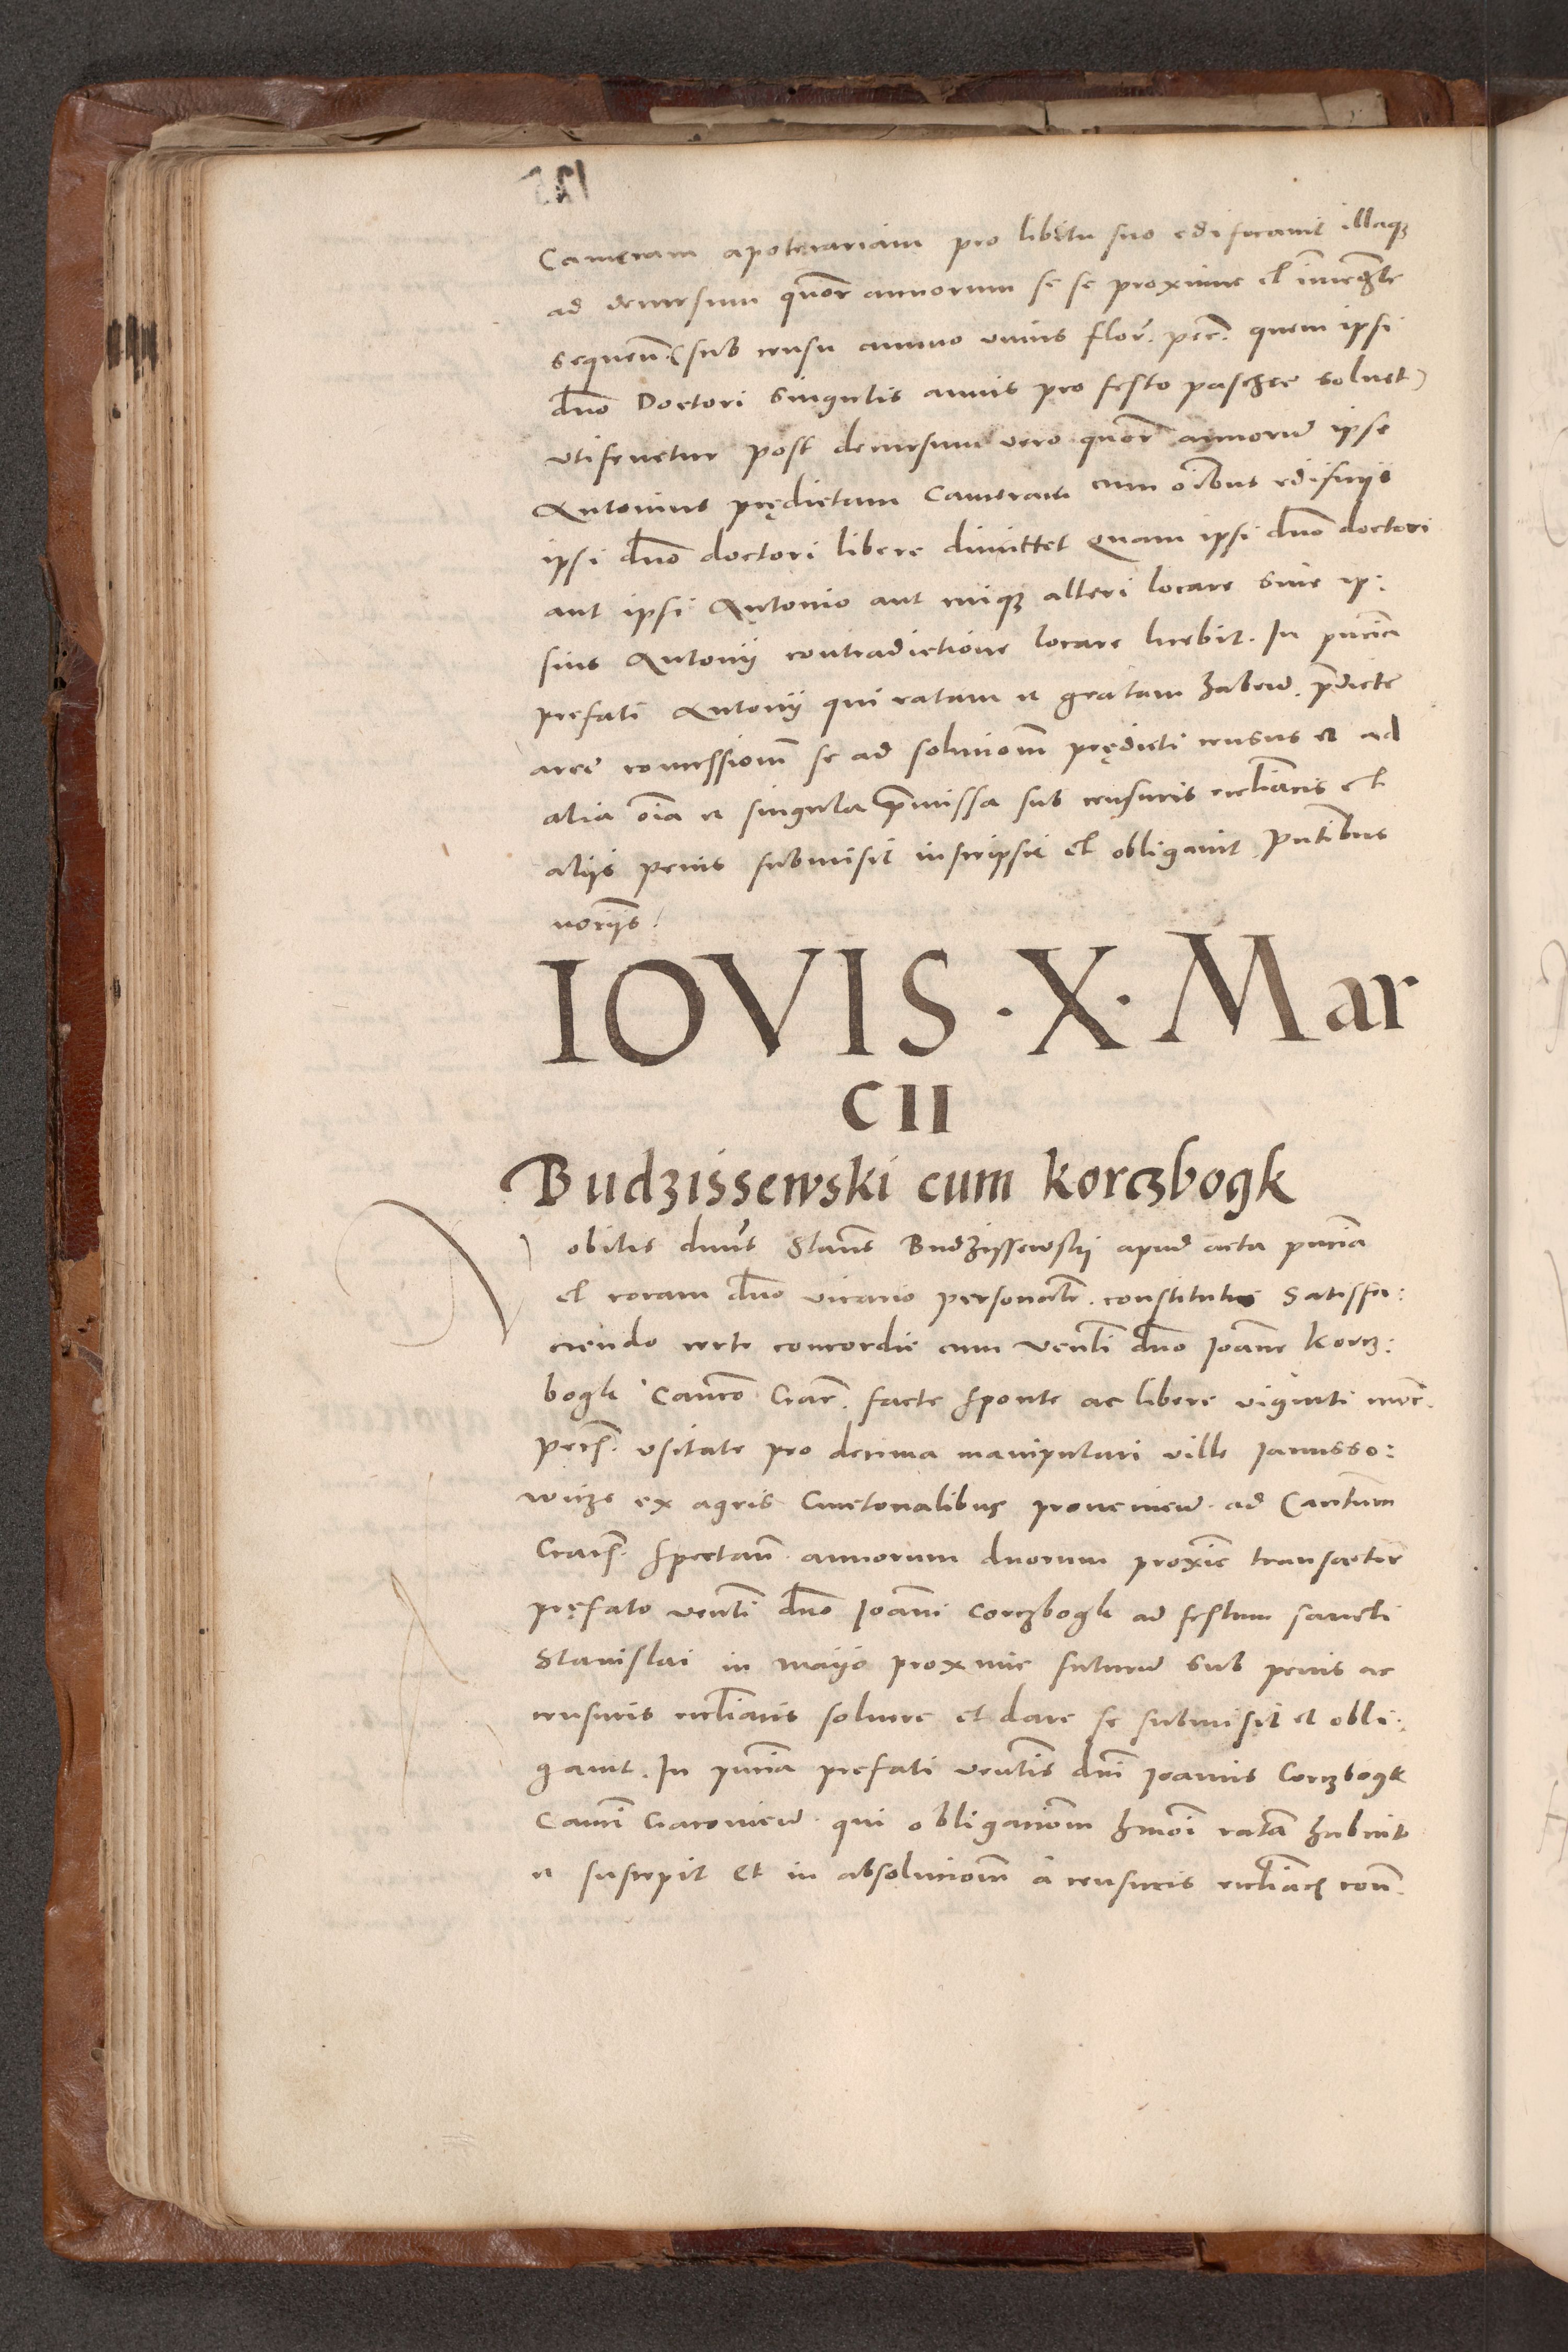 Cameram apotecariam pro libitu suo edificavit illaqz
ad decursum quor annorum se se proxime et immediate
sequen. (sub censu annuo unius flor. pec. quem ipsi
dno Doctori singulis annis pro festo paschce solvet)
utifruetur post decursum vero quor annorum ipse
Antonius prędictam Cameram cum oibus edificiis
ipsi dno doctori libere dimittet Quam ipsi dno doctori
aut ipsi Antonio aut cuiqz alteri locare sine ip:
sius Antonij contradictione locare licebit. In pncia
prefati Antonij qui ratam et gratam haben. pdicte
aree concessionem se ad solucionem prędicti census et ad
alia oia et singula pmissa sub censuris eccliacis et
aliis penis submisit inscripsit et obligavit Pntibus
notriis.
IOVIS · X · Mar
CII
Budzissewski cum korczbogk
Nobilis dnus Stans Budzissewskij apud acta pncia
et coram dno vicario personalr. constitutus Satisfa:
ciendo certe concordie cum Venli dno Joanne Korcz:
bogk Canco Crac. facte sponte ac libere viginti mrc.
pecs. usitate pro decima manipulari ville Janusso:
wicze ex agris Cmetonalibus provenien. ad Cantum
Cracs. spectan. annorum duorum proxie transactor
pręfato venli dno Joanni Corczbogk ad festum sancti
Stanislai in mayo proxime futurum sub penis ac
censuris ecclianis solvere et dare se submisit et obli:
gavit. In pncia prefati venlis dni Joannis Corczbogk
Canci Cracovien. qui obligacionem hmoi ratam habuit
et suscepit Et in absolucionem a censuris ecclacis con.